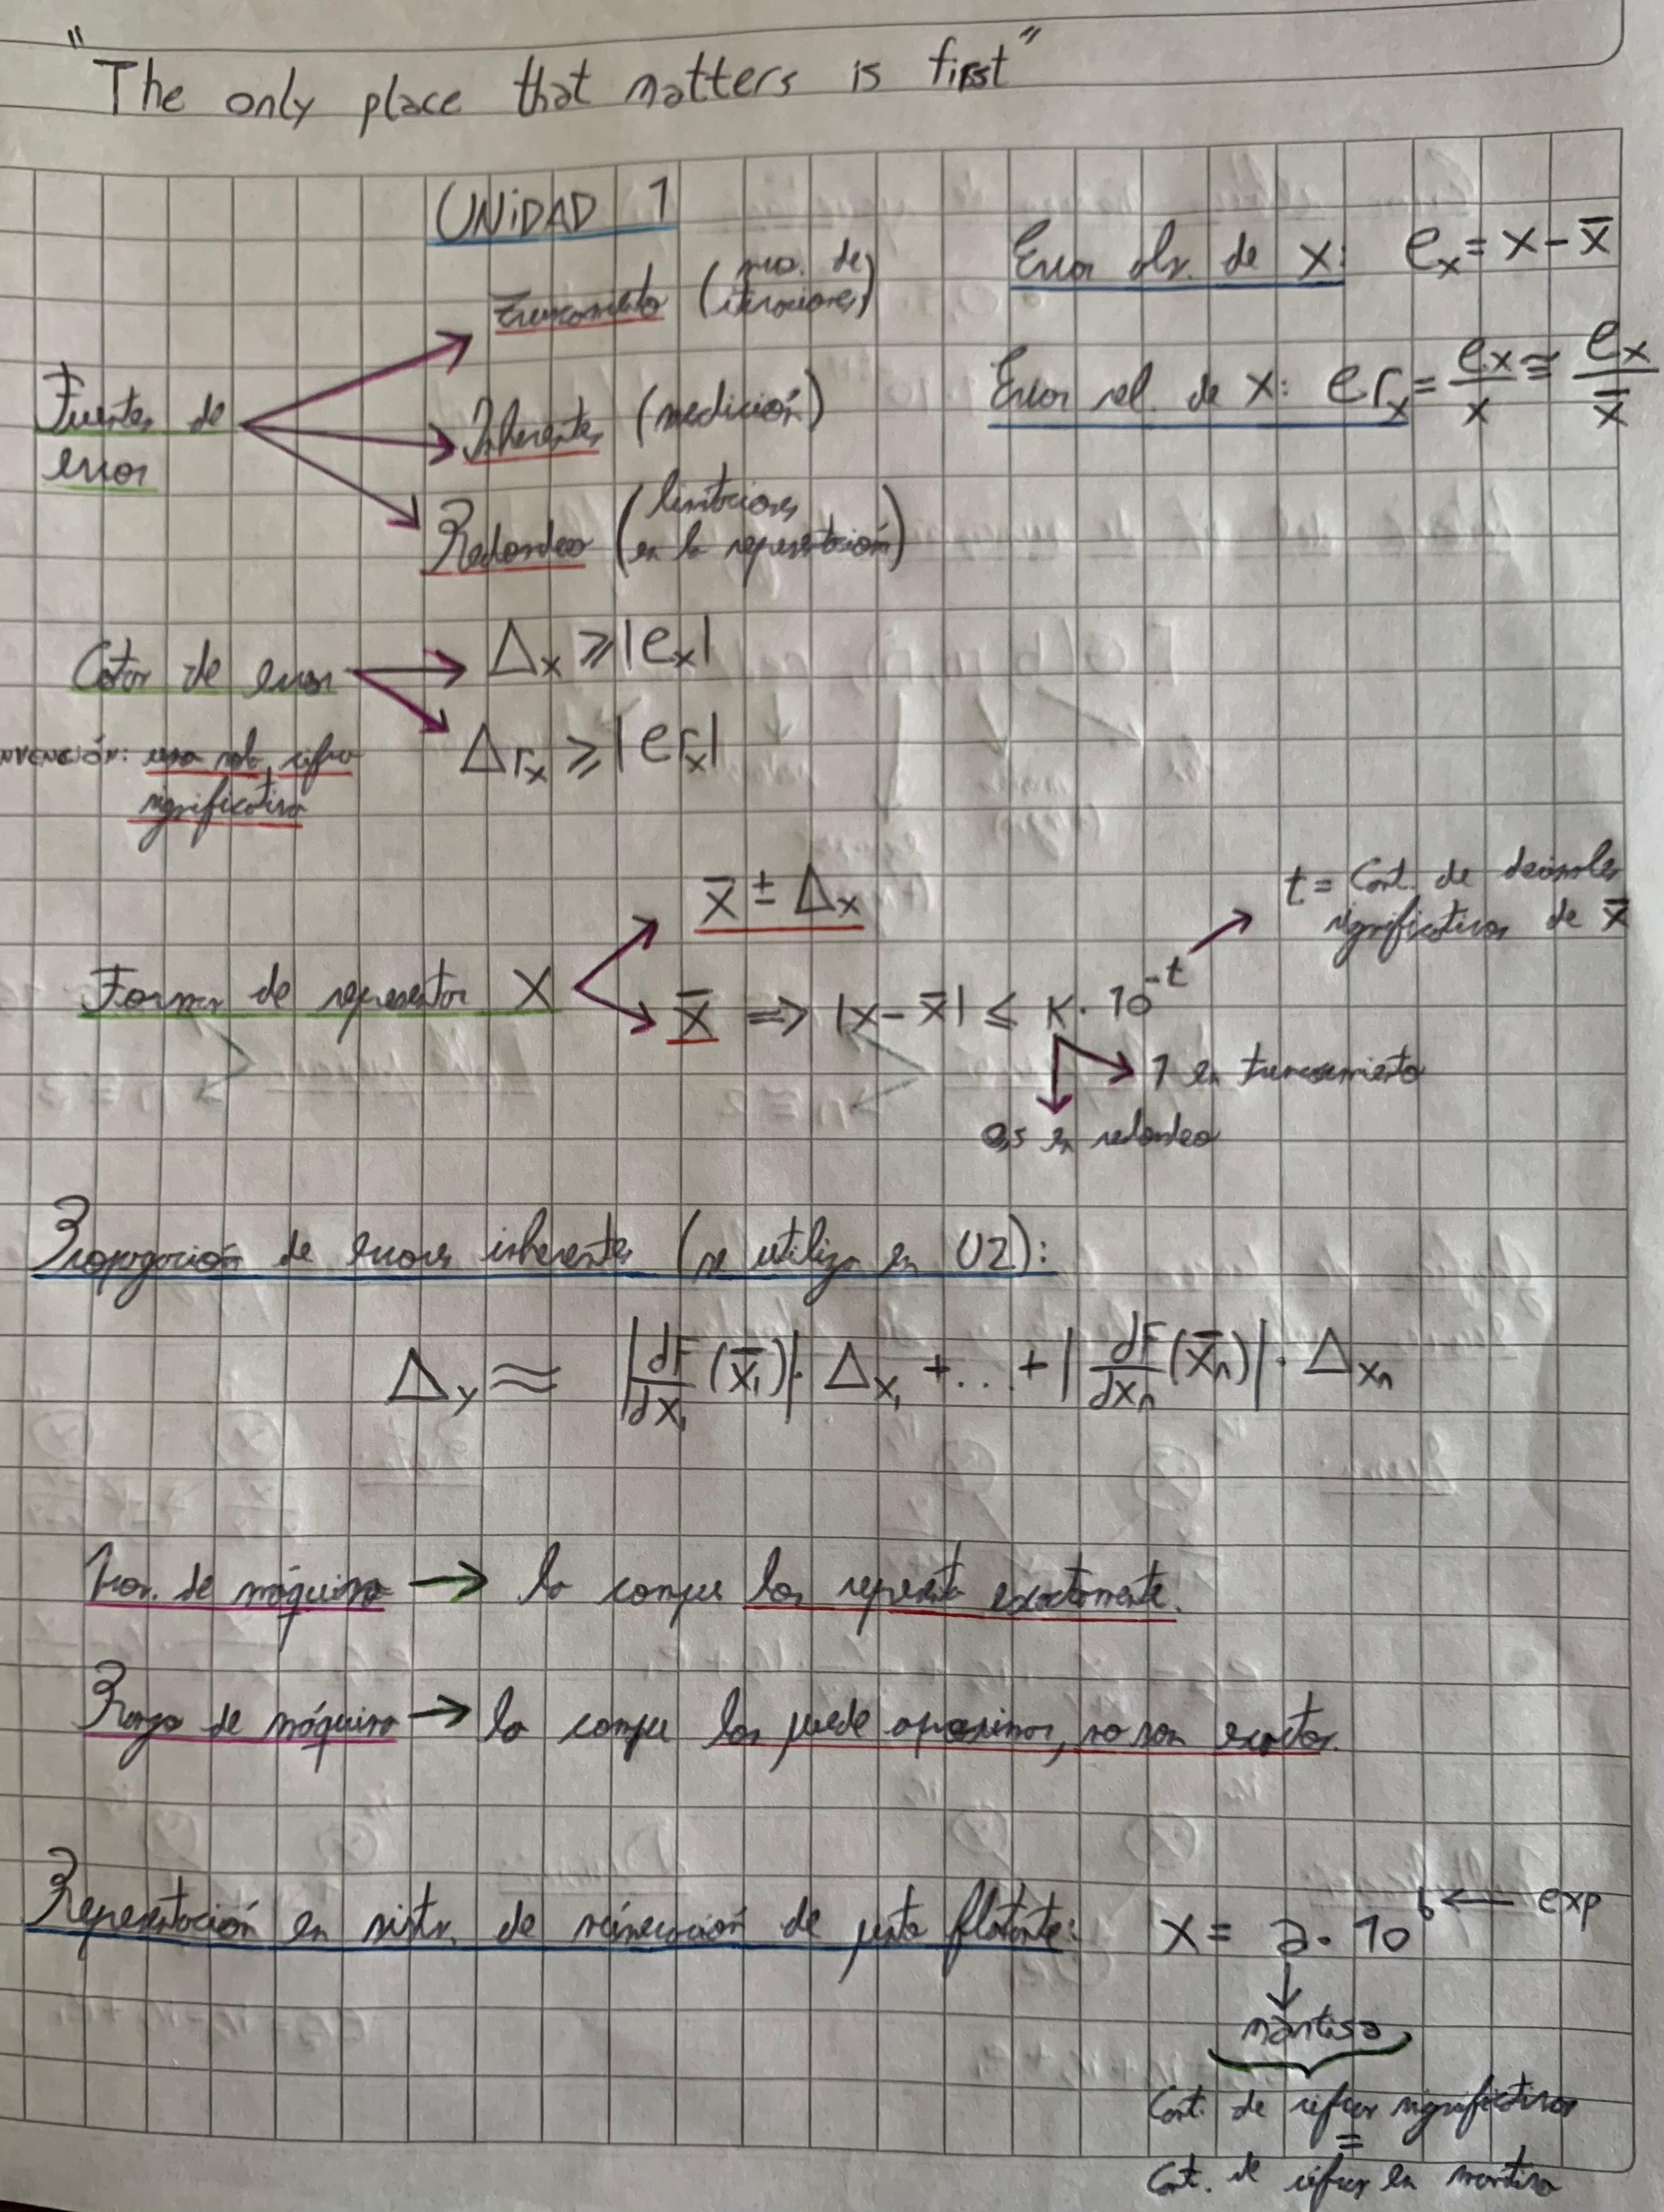 "The only place that matters is first"
UNIDAD 1
Error abs. de x: e_x = x - x̄
Error rel. de x: er_x = e_x/x ≅ e_x/x̄
Fuentes de error
Truncamiento (nro. de iteraciones)
Inherentes (medición)
Redondeo (limitaciones en la representación)
Cotas de error
Δx ≥ |e_x|
Δr_x ≥ |er_x|
NVENCIÓN: una sola cifra
significativa
Formas de representar X
x̄ ± Δx
x̄ ⇒ |x - x̄| ≤ K · 10^-t
t = Cant. de decimales
significativos de x̄
1 en truncamiento
0,5 en redondeo
Propagación de errores inherentes (se utiliza en U2):
Δy ≈ |dF/dx₁ (x̄₁)| · Δx₁ + ... + |dF/dxn (x̄n)| · Δxn
Nros. de máquina → la compu los representa exactamente.
Rango de máquina → la compu los puede aproximar, no son exactos.
Representación en sist. de numeración de punto flotante: x = a · 10^b ← exp
mantisa
Cant. de cifras significativas
=
Cant. de cifras en mantisa